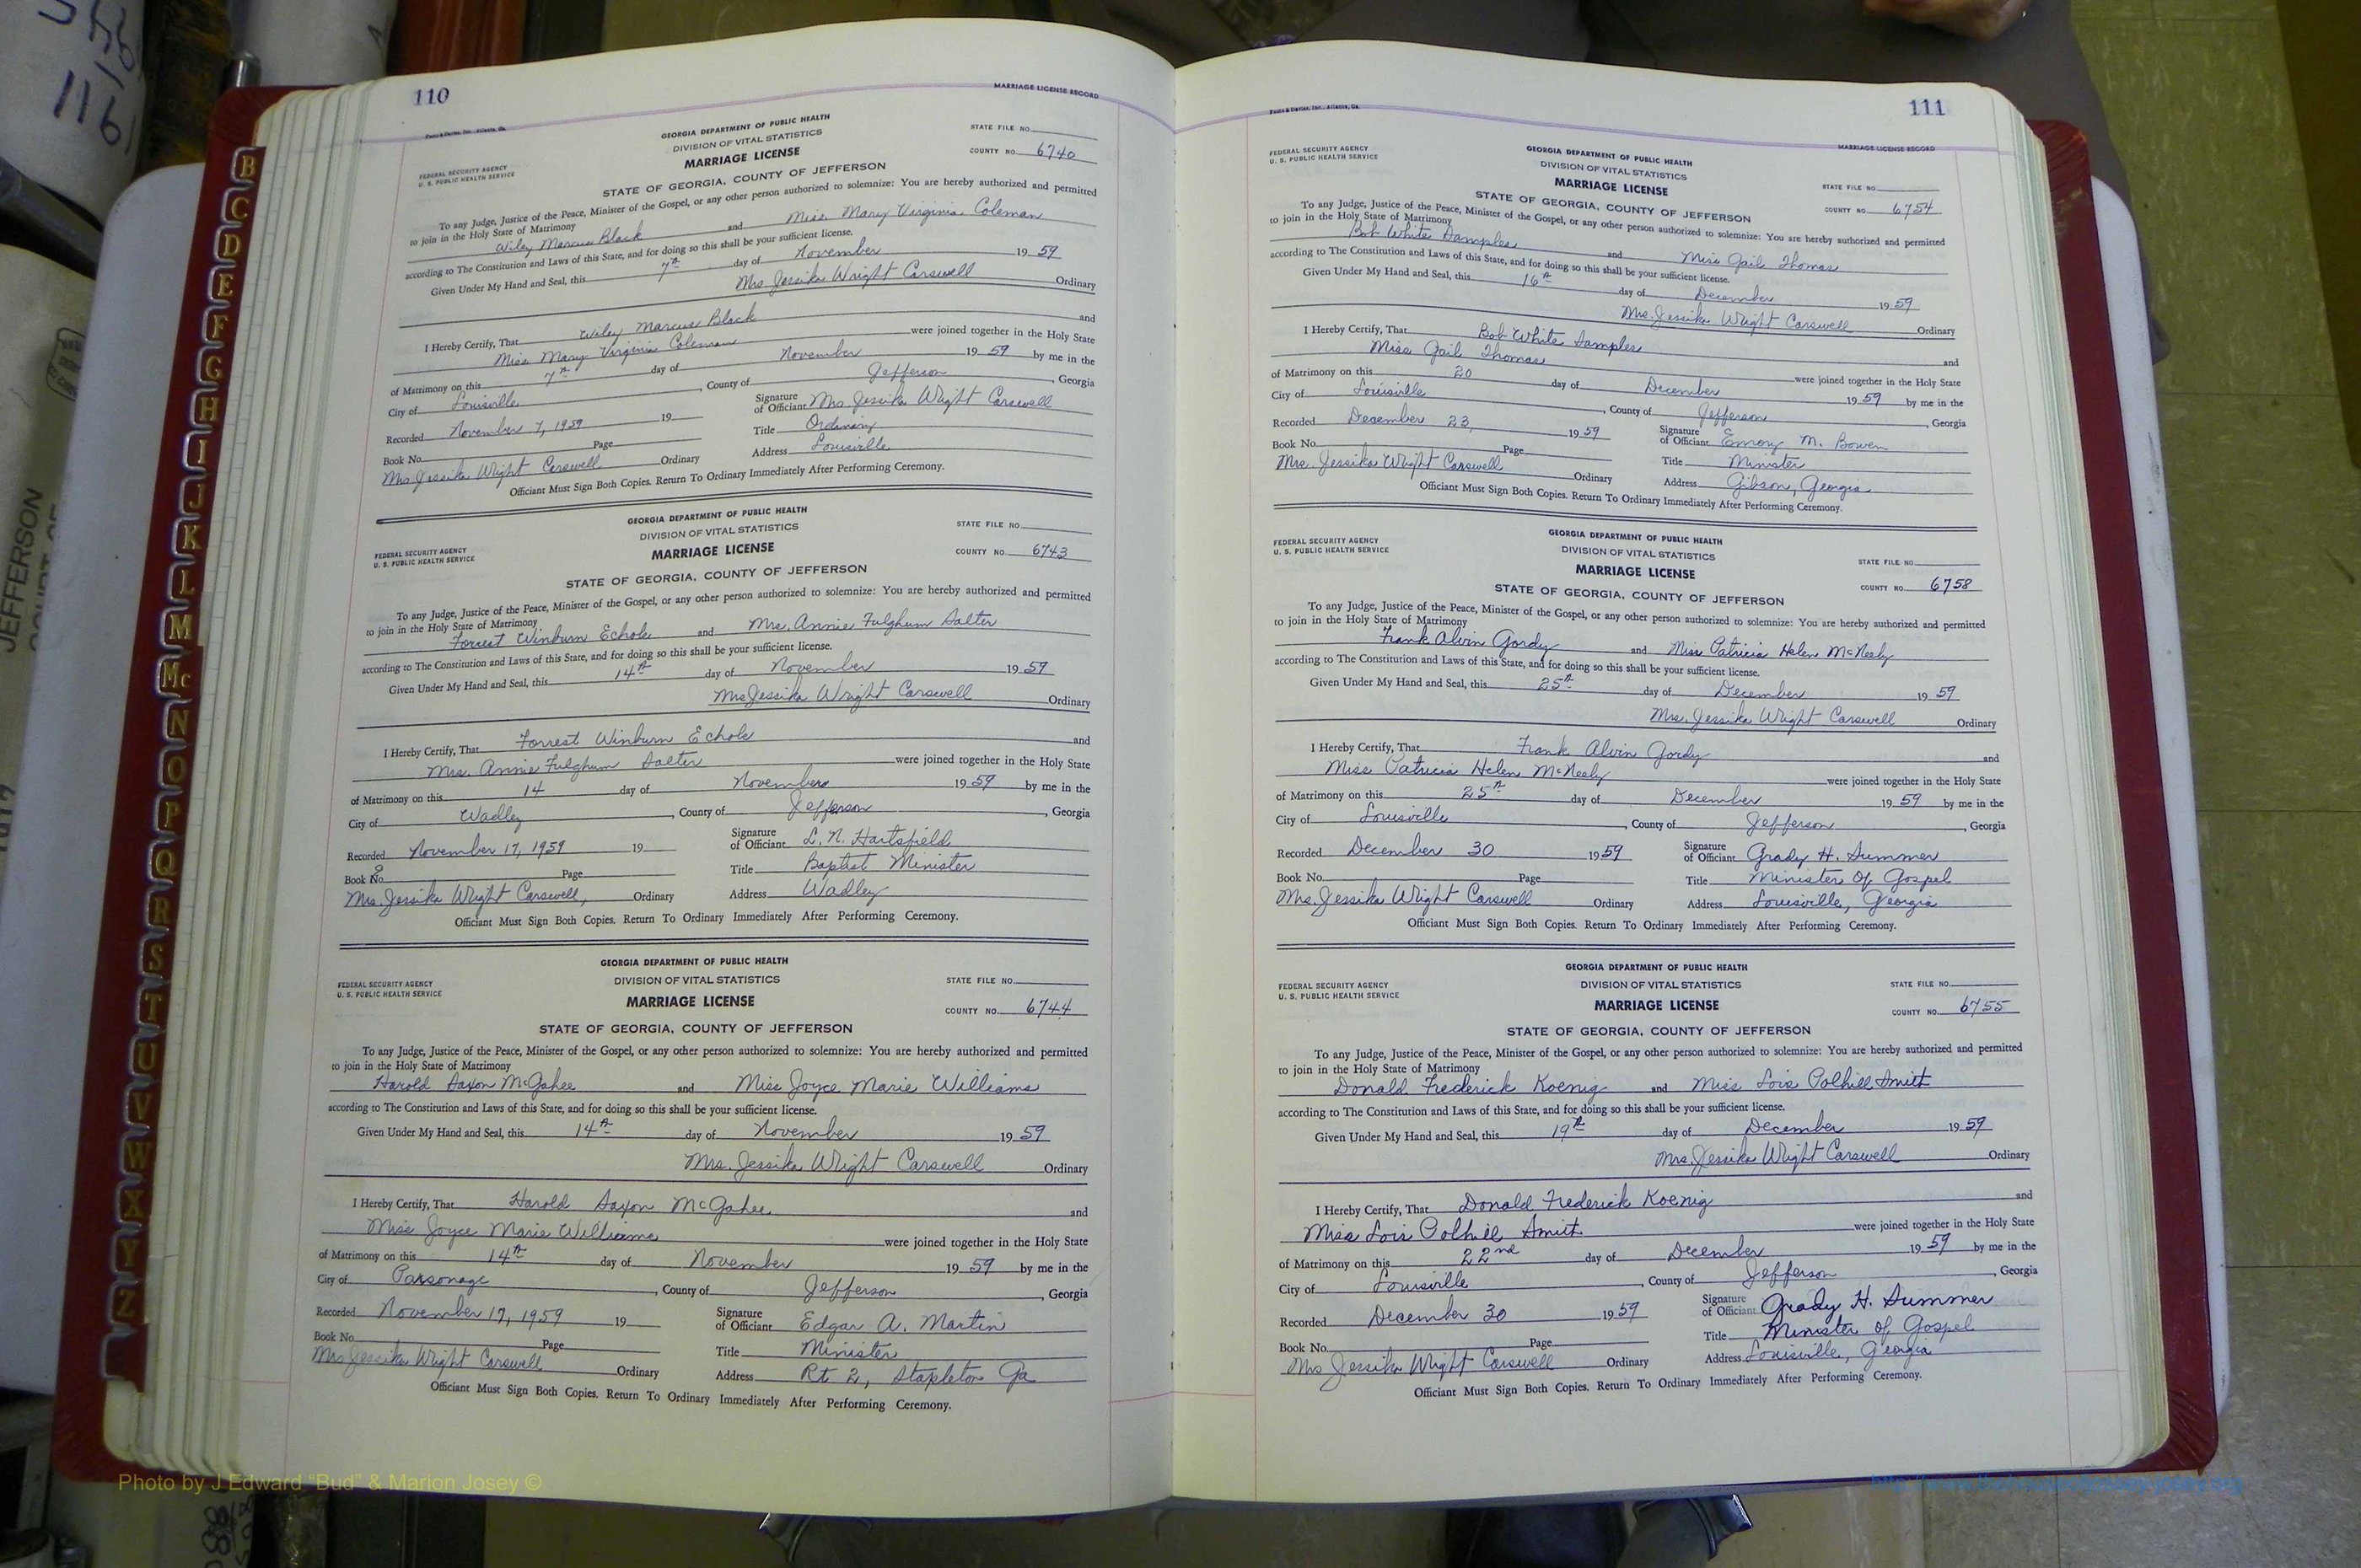 110
MARRIAGE LICENSE RECORD
GEORGIA DEPARTMENT OF PUBLIC HEALTH
DIVISION OF VITAL STATISTICS
MARRIAGE LICENSE
STATE FILE NO.
COUNTY NO. 6740
FEDERAL SECURITY AGENCY
U. S. PUBLIC HEALTH SERVICE
STATE OF GEORGIA, COUNTY OF JEFFERSON
To any Judge, Justice of the Peace, Minister of the Gospel, or any other person authorized to solemnize: You are hereby authorized and permitted
to join in the Holy State of Matrimony
Wiley Marcus Black and Miss Mary Virginia Coleman
according to The Constitution and Laws of this State, and for doing so this shall be your sufficient license.
Given Under My Hand and Seal, this 7th day of November 19 59
Mrs Jessika Wright Carswell Ordinary
I Hereby Certify, That Wiley Marcus Black and
Miss Mary Virginia Coleman were joined together in the Holy State
of Matrimony on this 7th day of November 19 59 by me in the
City of Louisville, County of Jefferson, Georgia
Recorded November 7, 1959 19
Signature of Officiant Mrs Jessika Wright Carswell
Book No. Page
Title Ordinary
Mrs Jessika Wright Carswell Ordinary
Address Louisville
Officiant Must Sign Both Copies. Return To Ordinary Immediately After Performing Ceremony.
GEORGIA DEPARTMENT OF PUBLIC HEALTH
DIVISION OF VITAL STATISTICS
MARRIAGE LICENSE
STATE FILE NO.
COUNTY NO. 6743
FEDERAL SECURITY AGENCY
U. S. PUBLIC HEALTH SERVICE
STATE OF GEORGIA, COUNTY OF JEFFERSON
To any Judge, Justice of the Peace, Minister of the Gospel, or any other person authorized to solemnize: You are hereby authorized and permitted
to join in the Holy State of Matrimony
Forrest Winburn Echols and Mrs. Annie Fulghum Salter
according to The Constitution and Laws of this State, and for doing so this shall be your sufficient license.
Given Under My Hand and Seal, this 14th day of November 19 59
Mrs Jessika Wright Carswell Ordinary
I Hereby Certify, That Forrest Winburn Echols and
Mrs. Annie Fulghum Salter were joined together in the Holy State
of Matrimony on this 14 day of November 19 59 by me in the
City of Wadley, County of Jefferson, Georgia
Recorded November 17, 1959 19
Signature of Officiant L. N. Hartsfield
Book No. Page
Title Baptist Minister
Mrs. Jessika Wright Carswell, Ordinary
Address Wadley
Officiant Must Sign Both Copies. Return To Ordinary Immediately After Performing Ceremony.
GEORGIA DEPARTMENT OF PUBLIC HEALTH
DIVISION OF VITAL STATISTICS
MARRIAGE LICENSE
STATE FILE NO.
COUNTY NO. 6744
FEDERAL SECURITY AGENCY
U. S. PUBLIC HEALTH SERVICE
STATE OF GEORGIA, COUNTY OF JEFFERSON
To any Judge, Justice of the Peace, Minister of the Gospel, or any other person authorized to solemnize: You are hereby authorized and permitted
to join in the Holy State of Matrimony
Harold Saxon McGahee and Miss Joyce Marie Williams
according to The Constitution and Laws of this State, and for doing so this shall be your sufficient license.
Given Under My Hand and Seal, this 14th day of November 19 59
Mrs. Jessika Wright Carswell Ordinary
I Hereby Certify, That Harold Saxon McGahee and
Miss Joyce Marie Williams were joined together in the Holy State
of Matrimony on this 14th day of November 19 59 by me in the
City of Parsonage, County of Jefferson, Georgia
Recorded November 17, 1959 19
Signature of Officiant Edgar A. Martin
Book No. Page
Title Minister
Mrs Jessika Wright Carswell Ordinary
Address Rt 2, Stapleton Ga
Officiant Must Sign Both Copies. Return To Ordinary Immediately After Performing Ceremony.
111
MARRIAGE LICENSE RECORD
FEDERAL SECURITY AGENCY
U. S. PUBLIC HEALTH SERVICE
GEORGIA DEPARTMENT OF PUBLIC HEALTH
DIVISION OF VITAL STATISTICS
MARRIAGE LICENSE
STATE FILE NO.
COUNTY NO. 6754
STATE OF GEORGIA, COUNTY OF JEFFERSON
To any Judge, Justice of the Peace, Minister of the Gospel, or any other person authorized to solemnize: You are hereby authorized and permitted
to join in the Holy State of Matrimony
Bob White Samples and Miss Gail Thomas
according to The Constitution and Laws of this State, and for doing so this shall be your sufficient license.
Given Under My Hand and Seal, this 16th day of December 19 59
Mrs. Jessika Wright Carswell Ordinary
I Hereby Certify, That Bob White Samples and
Miss Gail Thomas were joined together in the Holy State
of Matrimony on this 20 day of December 19 59 by me in the
City of Louisville, County of Jefferson, Georgia
Recorded December 23, 19 59
Signature of Officiant Emory M. Bowen
Book No. Page
Title Minister
Mrs. Jessika Wright Carswell Ordinary
Address Gibson, Georgia
Officiant Must Sign Both Copies. Return To Ordinary Immediately After Performing Ceremony.
GEORGIA DEPARTMENT OF PUBLIC HEALTH
DIVISION OF VITAL STATISTICS
MARRIAGE LICENSE
STATE FILE NO.
COUNTY NO. 6758
FEDERAL SECURITY AGENCY
U. S. PUBLIC HEALTH SERVICE
STATE OF GEORGIA, COUNTY OF JEFFERSON
To any Judge, Justice of the Peace, Minister of the Gospel, or any other person authorized to solemnize: You are hereby authorized and permitted
to join in the Holy State of Matrimony
Frank Alvin Gordy and Miss Patricia Helen McNeely
according to The Constitution and Laws of this State, and for doing so this shall be your sufficient license.
Given Under My Hand and Seal, this 25th day of December 19 59
Mrs. Jessika Wright Carswell Ordinary
I Hereby Certify, That Frank Alvin Gordy and
Miss Patricia Helen McNeely were joined together in the Holy State
of Matrimony on this 25th day of December 19 59 by me in the
City of Louisville, County of Jefferson, Georgia
Recorded December 30 19 59
Signature of Officiant Grady H. Summer
Book No. Page
Title Minister Of Gospel
Mrs. Jessika Wright Carswell Ordinary
Address Louisville, Georgia
Officiant Must Sign Both Copies. Return To Ordinary Immediately After Performing Ceremony.
GEORGIA DEPARTMENT OF PUBLIC HEALTH
DIVISION OF VITAL STATISTICS
MARRIAGE LICENSE
STATE FILE NO.
COUNTY NO. 6755
FEDERAL SECURITY AGENCY
U. S. PUBLIC HEALTH SERVICE
STATE OF GEORGIA, COUNTY OF JEFFERSON
To any Judge, Justice of the Peace, Minister of the Gospel, or any other person authorized to solemnize: You are hereby authorized and permitted
to join in the Holy State of Matrimony
Donald Frederick Koenig and Miss Lois Polhill Smith
according to The Constitution and Laws of this State, and for doing so this shall be your sufficient license.
Given Under My Hand and Seal, this 19th day of December 19 59
Mrs. Jessika Wright Carswell Ordinary
I Hereby Certify, That Donald Frederick Koenig and
Miss Lois Polhill Smith were joined together in the Holy State
of Matrimony on this 22nd day of December 19 59 by me in the
City of Louisville, County of Jefferson, Georgia
Recorded December 30 19 59
Signature of Officiant Grady H. Summer
Book No. Page
Title Minister of Gospel
Mrs Jessika Wright Carswell Ordinary
Address Louisville, Georgia
Officiant Must Sign Both Copies. Return To Ordinary Immediately After Performing Ceremony.
B
C
D
E
F
G
H
I
J
K
L
M
Mc
N
O
P
Q
R
S
T
U
V
W
X
Y
Z
JEFFERSON
Photo by J Edward “Bud” & Marion Josey ©